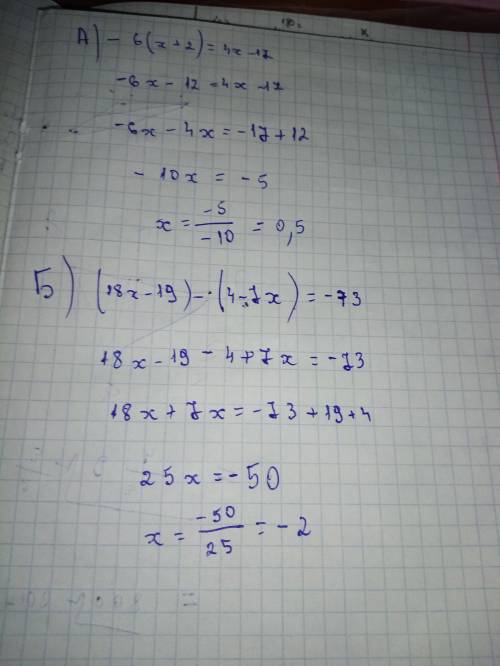 А) - 6(x+2) = 4x - 17
-6x - 12 = 4x - 17
-6x - 4x = -17 + 12
- 10x = -5
x = -5/-10 = 0,5
Б) (18x - 19) - (4 - 7x) = -73
18x - 19 - 4 + 7x = -73
18x + 7x = -73 + 19 + 4
25x = -50
x = -50/25 = -2